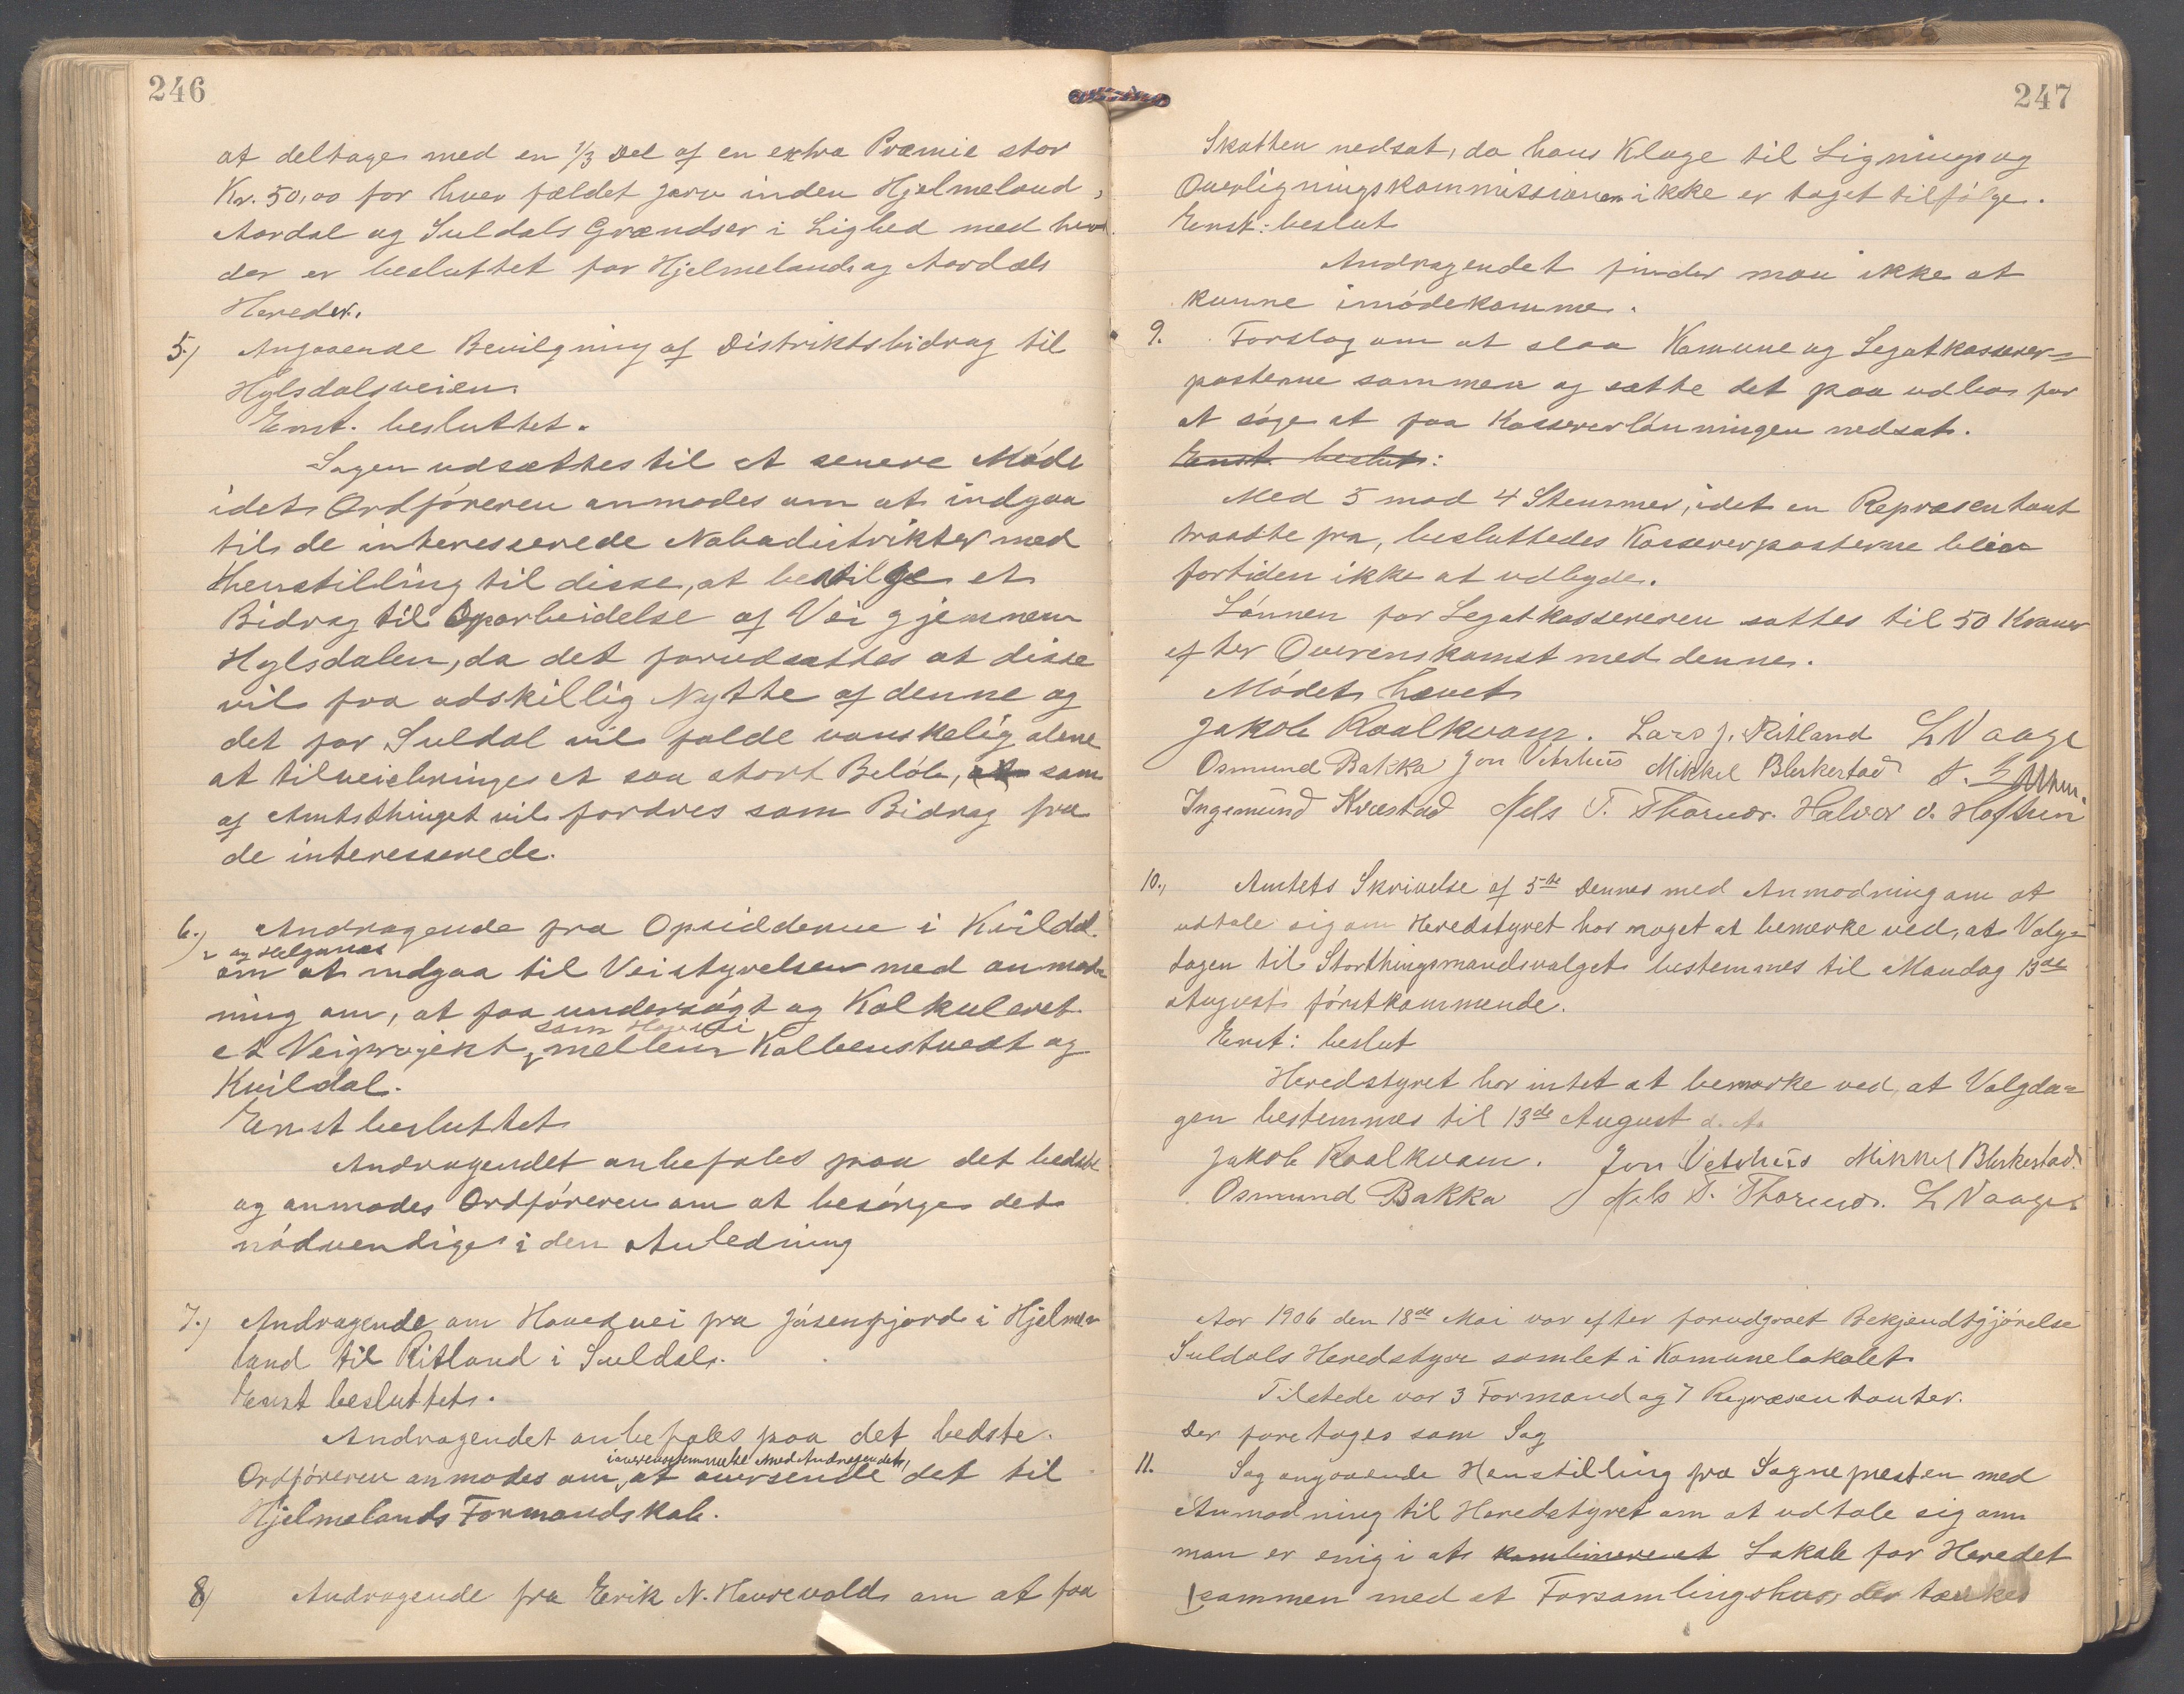 246
at deltage med en 1/3 Del af en extra Præmie stor
Kr. 50,00 for hver fældet Jærv inden Hjelmeland,
Aardal og Suldals Grændser i Lighed med hvad
der er besluttet for Hjelmelands og Aardals
Hereder.
5.) Angaaende Bevilgning af Distriktsbidrag til
Hylsdalsveien.
Enst. besluttet.
Sagen udsættes til et senere Møde
idet Ordføreren anmodes om at indgaa
til de interesserede Nabodistrikter med
Henstilling til disse, at bevilge et
Bidrag til Oparbeidelse af Vei gjennem
Hylsdalen, da det forudsættes at disse
vil faa adskillig Nytte af denne og
det for Suldal vil falde vanskelig alene
at tilveiebringe et saa stort Beløb, som
af Amtsthinget vil fordres som Bidrag fra
de interesserede.
6.) Andragende fra Opsidderne i Kvildal
og Helganes
om at indgaa til Veistyrelsen med anmod-
ning om, at faa undersøgt og Kalkuleret
som Hovedvei
et Veiprojekt, mellem Kolbenstvedt og
Kvildal.
Enst besluttet
Andragendet anbefales paa det bedste
og anmodes Ordføreren om at besørge det
nødvendige i den Anledning
7.) Andragende om Hovedvei fra Jøsenfjord i Hjelme-
land til Ritland i Suldal.
Enst besluttet.
Andragendet anbefales paa det bedste.
i overensstemmelse med Andragendet,
Ordføreren anmodes om, at oversende det til
Hjelmelands Formandskab.
8) Andragende fra Erik N. Haurevold om at faa
247
Skatten nedsat, da hans Klage til Lignings og
Overligningskommissionen ikke er taget tilfølge.
Enst: beslut
Andragendet finder man ikke at
kunne imødekomme.
9. Forslag om at slaa Komune og Legatkasserer-
posterne sammen og sætte det paa udbud for
at søge at faa Kassererlønningen nedsat.
Enst. beslut:
Med 5 mod 4 Stemmer, idet en Repræsentant
traadte fra, besluttedes Kassererposterne bliver
fortiden ikke at udbyde.
Lønnen for Legatkassereren sattes til 50 Kroner
efter Overenskomst med denne.
Mødet hævet
Jakob Roalkvam. Lars J. Ritland L Vaage
Osmund Bakka Jon Vetrhus Mikkel Bleskestad
Ingemund Kvæstad Nels T. Thornor. Halvor O. Hoftun
10., Amtets Skrivelse af 5te Dennes med Anmodning om at
udtale sig om Heredstyret har noget at bemerke ved, at Valg-
dagen til Storthingsmandsvalget bestemmes til Mandag 13de
August førstkommende.
Enst: beslut
Heredstyret har intet at bemærke ved, at Valgda-
gen bestemmes til 13de August d. A.
Jakob Roalkvam. Jon Vetrhus Mikkel Bleskestad.
Osmund Bakka Nels T. Thornor. L Vaage
Aar 1906 den 18de Mai var efter forudgaaet Bekjendtgjørelse
Suldals Heredstyre samlet i Komunelokalet
Tilstede var 3 Formænd og 7 Repræsentanter.
Der foretoges som Sag
11. Sag angaaende Henstilling fra Sognepresten med
Anmodning til Heredstyret om at udtale sig om
man er enig i at kombinere et Lokale for Heredet
sammen med et Forsamlingshus, der tænkes